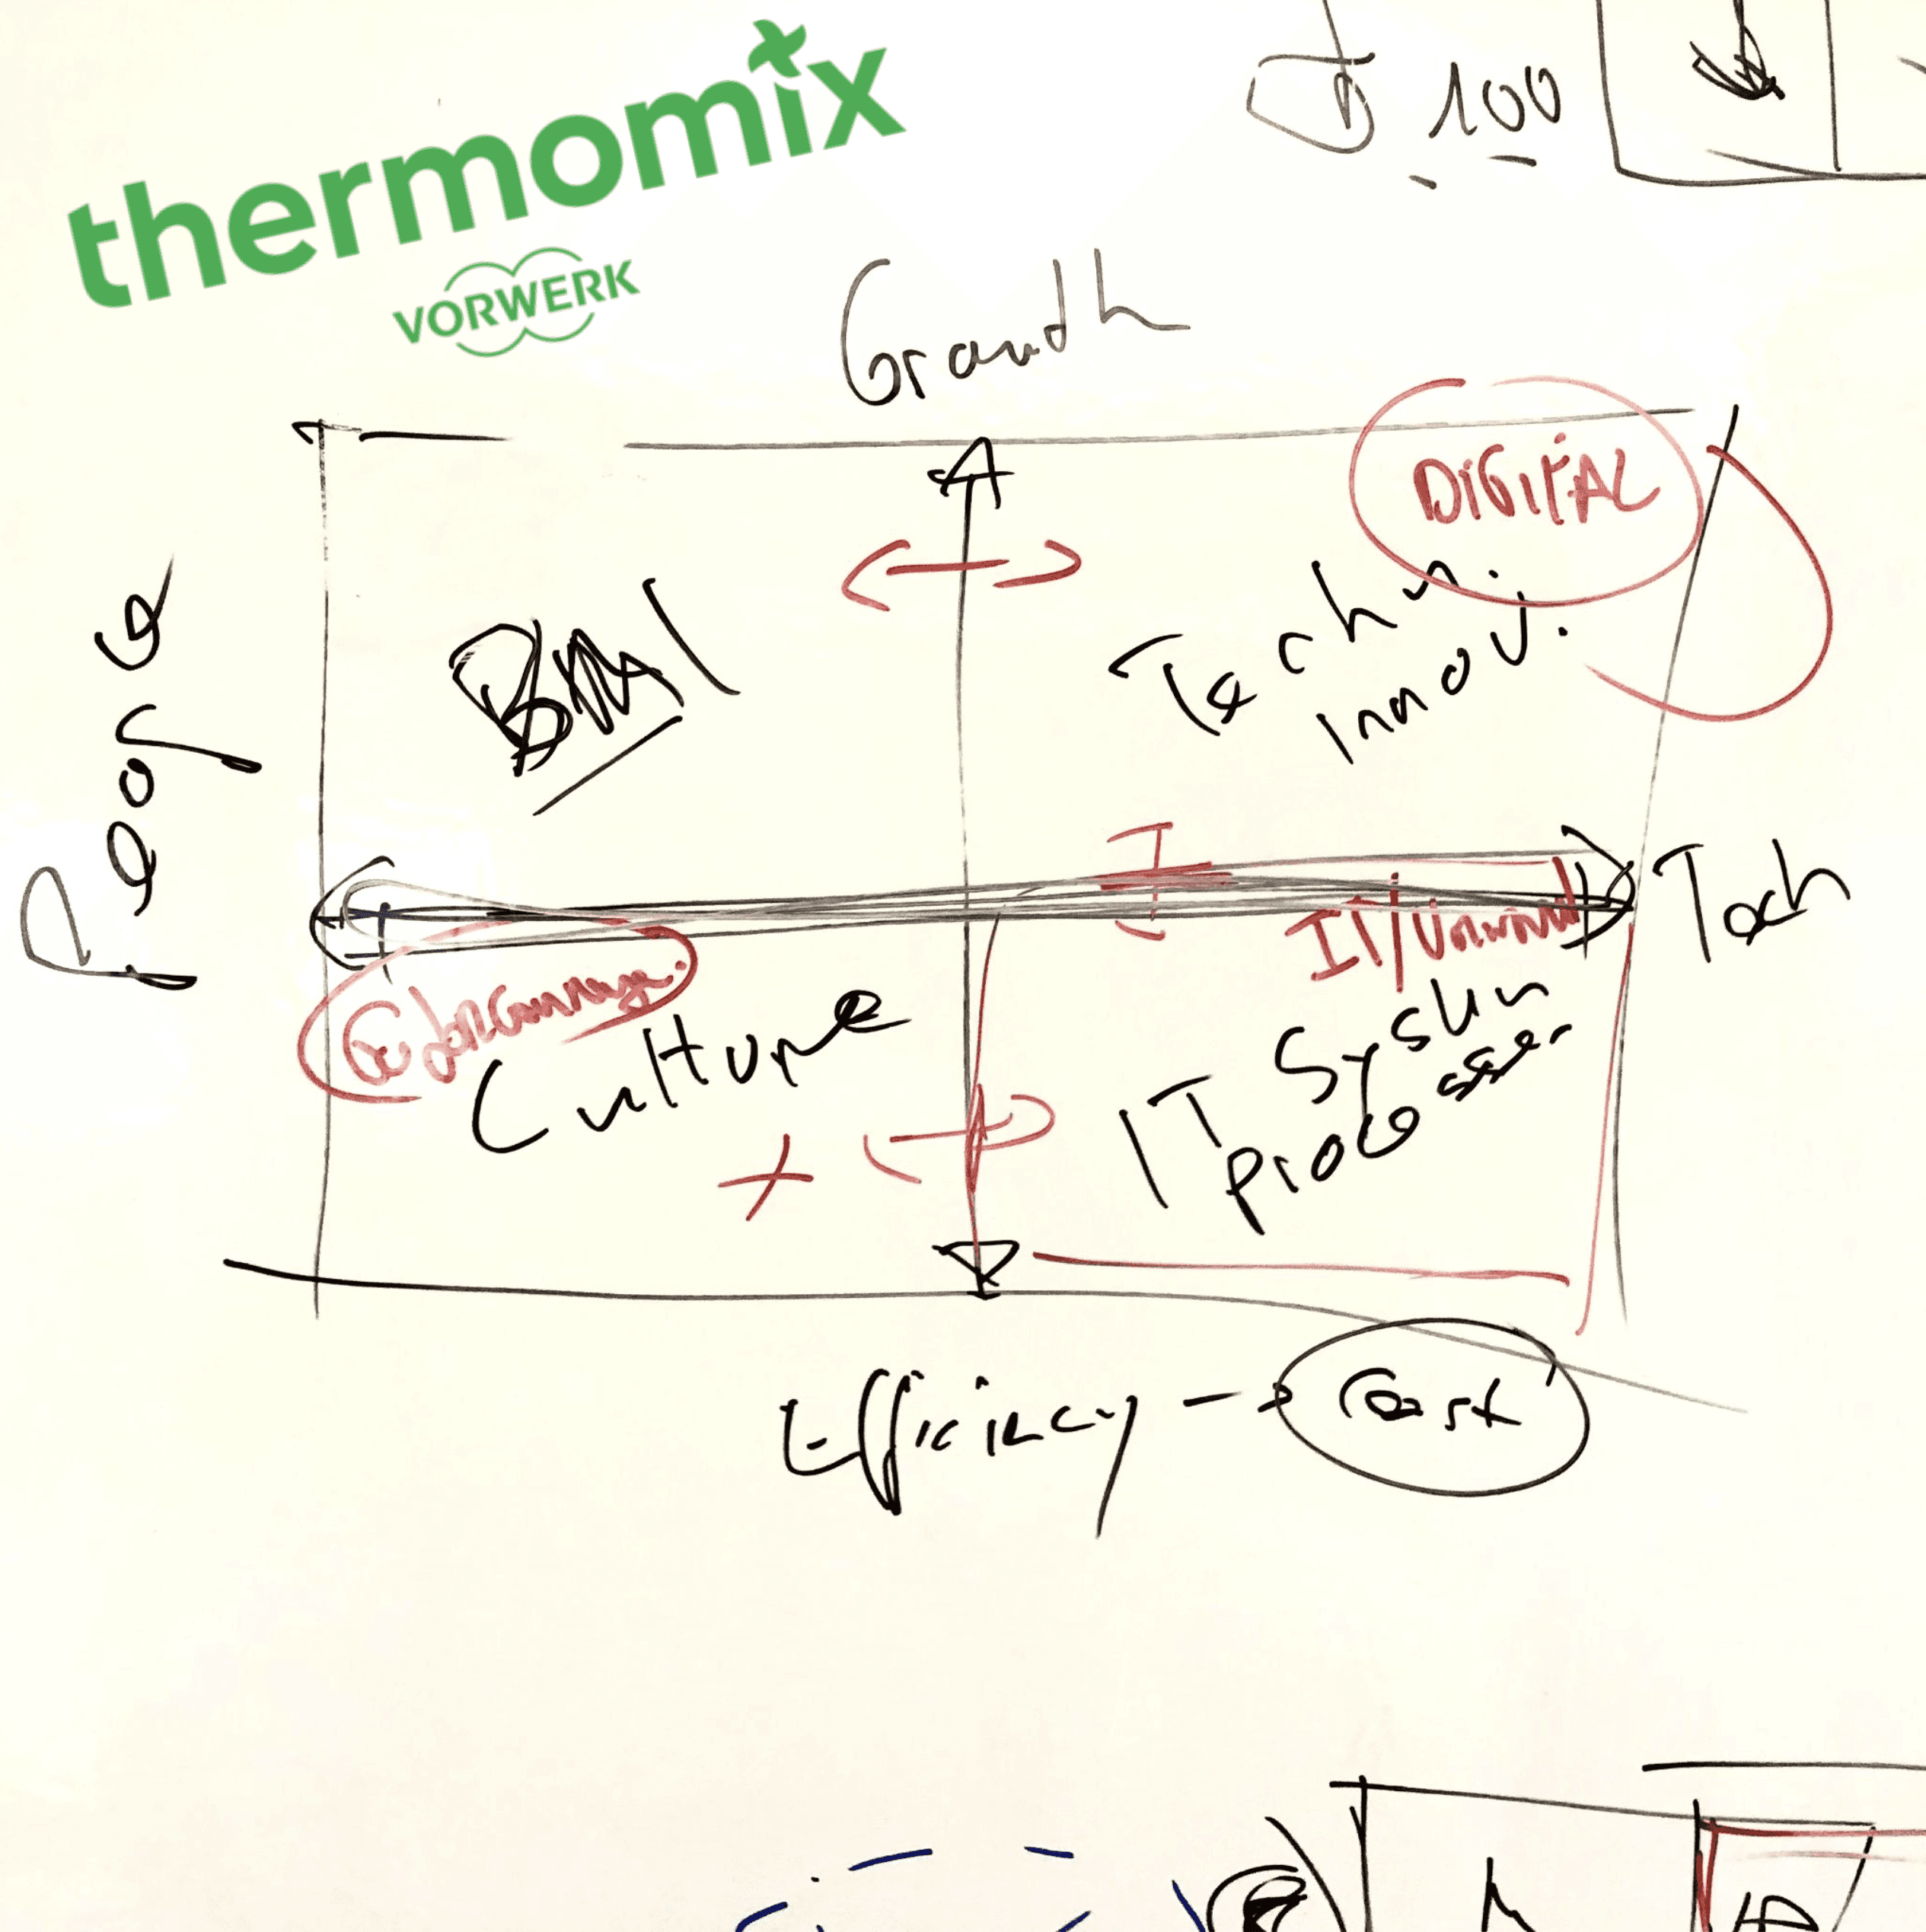 thermomix
VORWERK
100
Growth
DIGITAL
People
BMI
Techn.
Innov.
Tech
IT/
Culture
IT System
processes
Efficiency → Cost